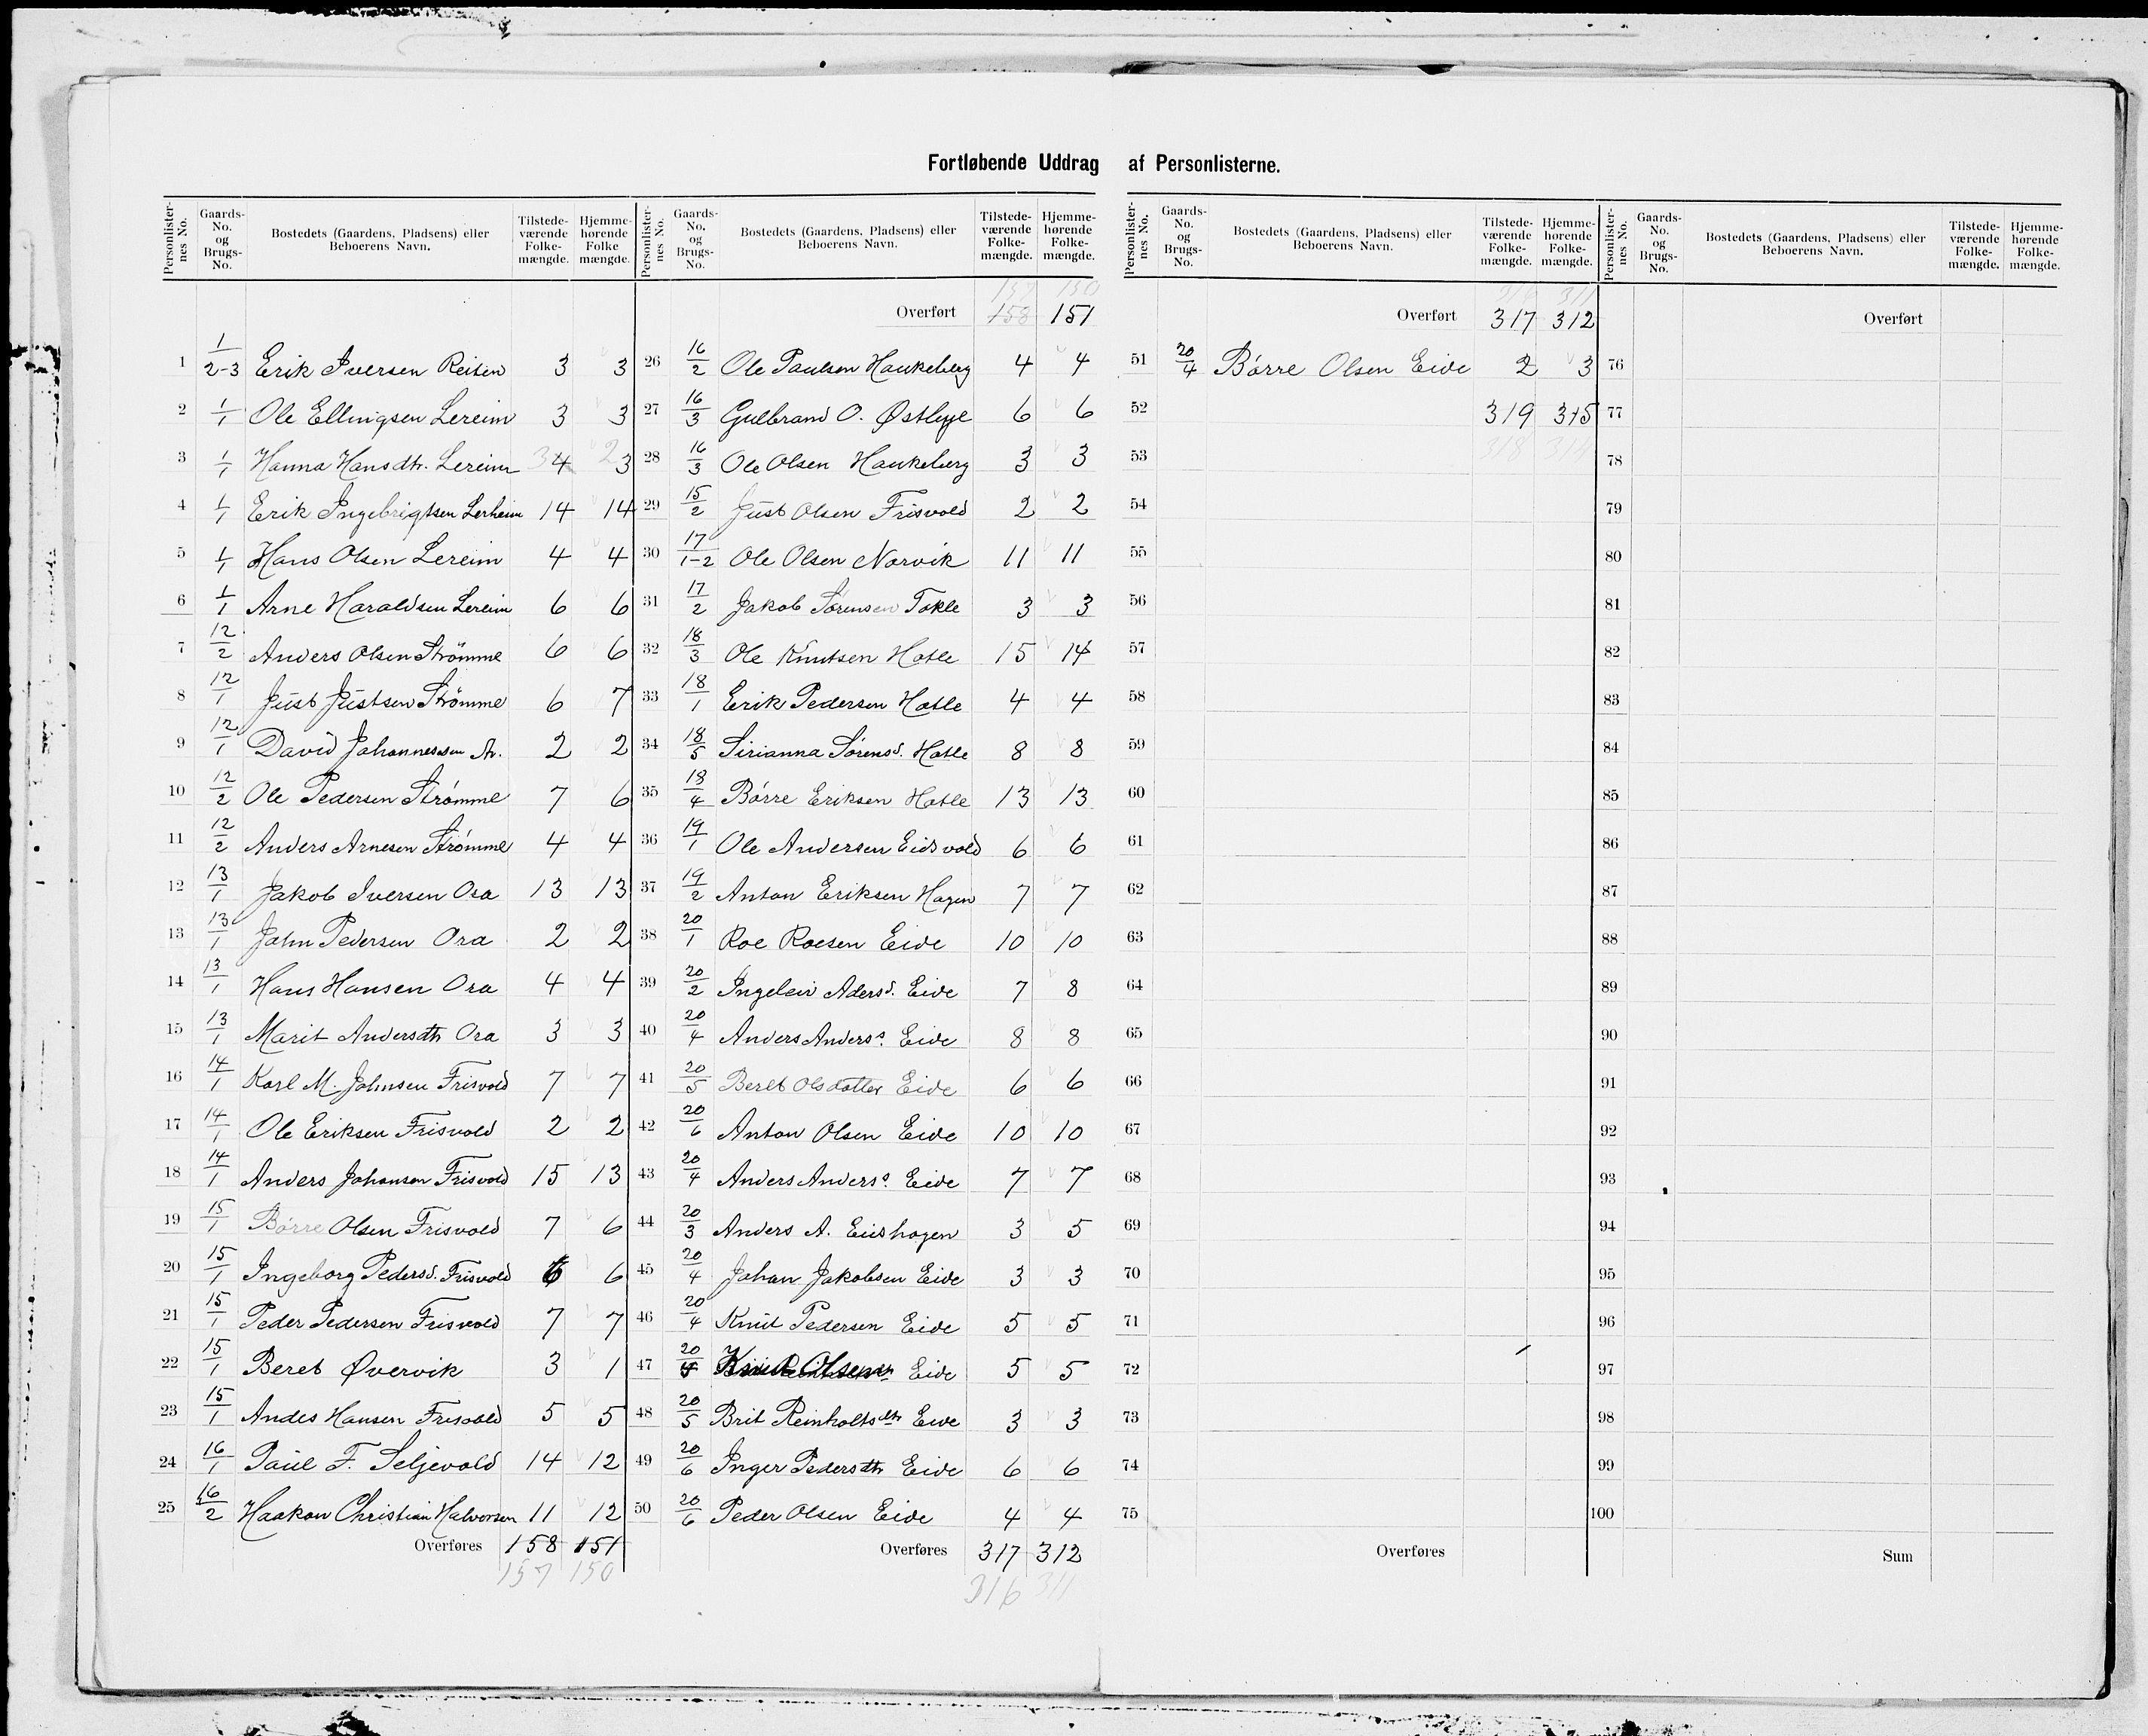 Fortløbende Uddrag af Personlisterne.
Personlister-nes No. Gaards-No. og Brugs-No. Bostedets (Gaardens, Pladsens) eller Beboerens Navn. Tilstede-værende Folke-mængde. Hjemme-hørende Folke mængde.
1 1/2-3 Erik Iversen Reiten 3 3
2 1/1 Ole Ellingsen Lereim 3 3
3 1/1 Hanna Hansdtr. Lereim 3 4 2 3
4 1/1 Erik Ingebrigtsen Lerheim 14 14
5 1/1 Hans Olsen Lereim 4 4
6 1/1 Arne Haraldsen Lereim 6 6
7 12/2 Anders Olsen Strömme 6 6
8 12/1 Just Justsen Strömme 6 7
9 12/1 David Johannessen Str. 2 2
10 12/2 Ole Pedersen Strömme 7 6
11 12/2 Anders Arnesen Strömme 4 4
12 13/1 Jakob Iversen Ora 13 13
13 13/1 John Pedersen Ora 2 2
14 13/1 Hans Hansen Ora 4 4
15 13/1 Marit Andersdtr Ora 3 3
16 14/1 Karl M. Johnsen Frisvold 7 7
17 14/1 Ole Eriksen Frisvold 2 2
18 14/1 Anders Johansen Frisvold 15 13
19 15/1 Börre Olsen Frisvold 7 6
20 15/1 Ingeborg Pedersd. Frisvold 6 6
21 15/1 Peder Pedersen Frisvold 7 7
22 15/1 Beret Øvervik 3 1
23 15/1 Andes Hansen Frisvold 5 5
24 16/1 Paul F. Seljevold 14 12
25 16/2 Haakon Christian Halvorsen 11 12
Overføres 158 151
157 150
Personlister-nes No. Gaards-No. og Brugs-No. Bostedets (Gaardens, Pladsens) eller Beboerens Navn. Tilstede-værende Folke-mængde. Hjemme-hørende Folke-mængde.
157 150
Overført 158 151
26 16/2 Ole Paulsen Haukeberg 4 4
27 16/3 Gulbrand O. Østlyge 6 6
28 16/3 Ole Olsen Haukeberg 3 3
29 15/2 Just Olsen Frisvold 2 2
30 17/1-2 Ole Olsen Norvik 11 11
31 17/2 Jakob Sörensen Tokle 3 3
32 18/3 Ole Knutsen Hatle 15 14
33 18/1 Erik Pedersen Hatle 4 4
34 18/5 Sirianna Sörensd. Hatle 8 8
35 18/4 Börre Eriksen Hatle 13 13
36 19/1 Ole Andersen Eidsvold 6 6
37 19/2 Anton Eriksen Hagen 7 7
38 20/1 Roe Roesen Eide 10 10
39 20/2 Ingeleiv Adersd. Eide 7 8
40 20/4 Anders Anders. Eide 8 8
41 20/5 Beret Olsdatter Eide 6 6
42 20/6 Anton Olsen Eide 10 10
43 20/4 Anders Anders. Eide 7 7
44 20/3 Anders A. Eidshagen 3 5
45 20/4 Johan Jakobsen Eide 3 3
46 20/4 Knut Pedersen Eide 5 5
47 20/ Knut Olsen Eide 5 5
48 20/5 Brit Reinholtsdtr Eide 3 3
49 20/6 Inger Pedersdtr Eide 6 6
50 20/6 Peder Olsen Eide 4 4
Overføres 317 312
316 311
Personlister-nes No. Gaards-No. og Brugs-No. Bostedets (Gaardens, Pladsens) eller Beboerens Navn. Tilstede-værende Folke-mængde. Hjemme-hørende Folke-mængde.
316 311
Overført 317 312
51 20/4 Börre Olsen Eide 2 3
52 319 315
53 318 314
54
55
56
57
58
59
60
61
62
63
64
65
66
67
68
69
70
71
72
73
74
75
Overføres
Personlister-nes No. Gaards-No. og Brugs-No. Bostedets (Gaardens, Pladsens) eller Beboerens Navn. Tilstede-værende Folke-mængde. Hjemme-hørende Folke-mængde.
Overført
76
77
78
79
80
81
82
83
84
85
86
87
88
89
90
91
92
93
94
95
96
97
98
99
100
Sum